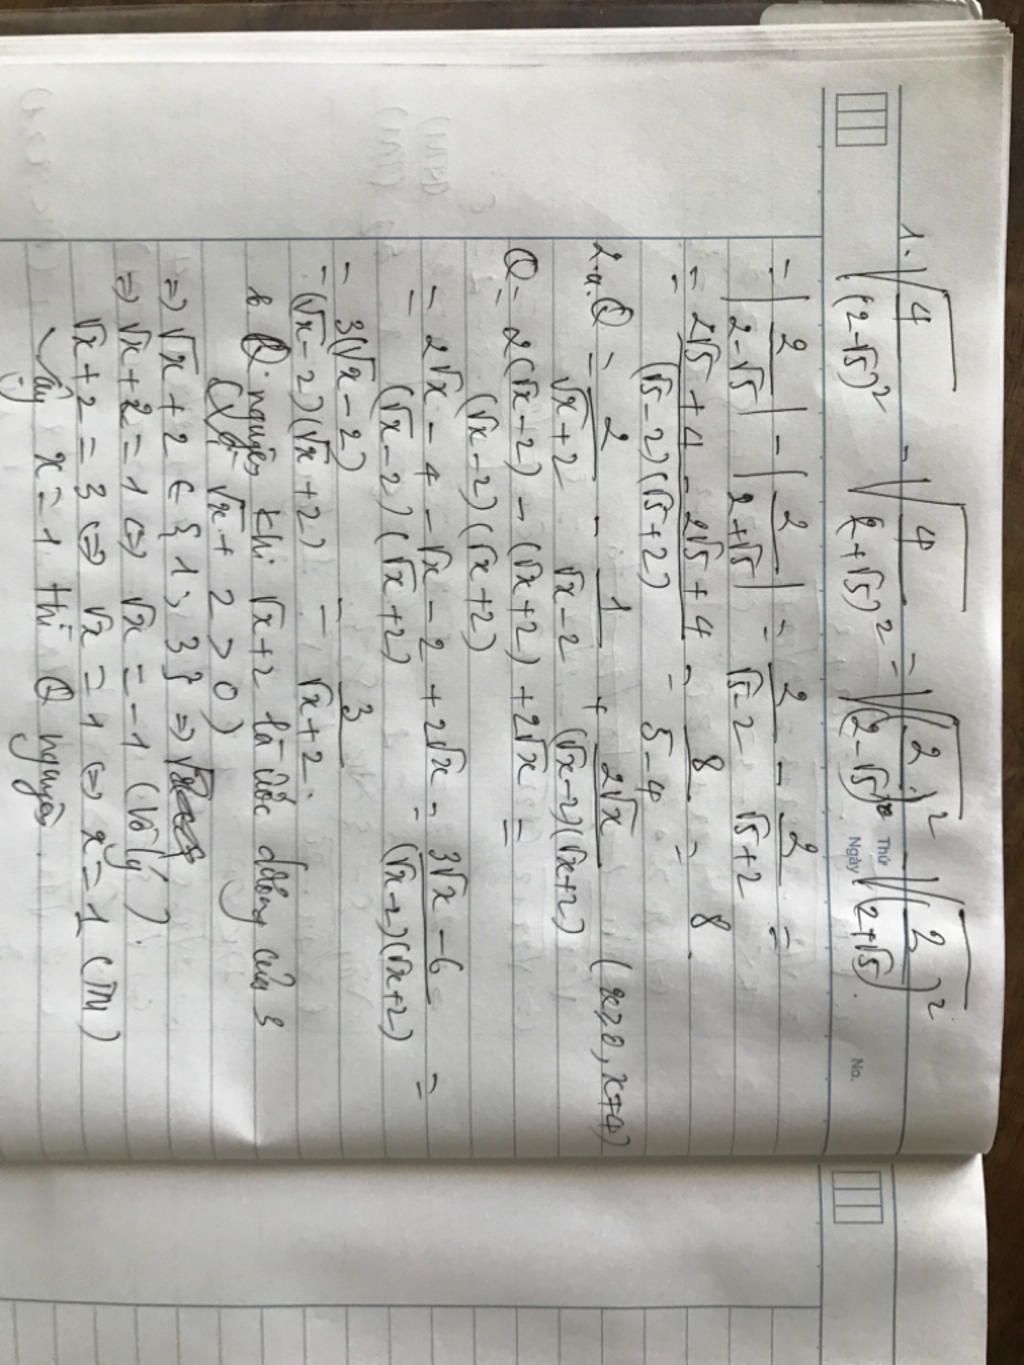 Thứ
Ngày
No.
1. √(4/(2-√5)²) - √(4/(2+√5)²) = √((2/(2-√5))²) - √((2/(2+√5))²)
= |2/(2-√5)| - |2/(2+√5)| = 2/(√5-2) - 2/(√5+2) =
= (2√5 + 4 - 2√5 + 4)/((√5-2)(√5+2)) = 8/(5-4) = 8.
2.a. Q = 2/(√x+2) - 1/(√x-2) + 2√x/((√x-2)(√x+2)) (x≥0, x≠4)
Q = (2(√x-2) - (√x+2) + 2√x)/((√x-2)(√x+2)) =
= (2√x - 4 - √x - 2 + 2√x)/((√x-2)(√x+2)) = (3√x - 6)/((√x-2)(√x+2)) =
= 3(√x-2)/((√x-2)(√x+2)) = 3/(√x+2).
b. Q nguyên khi √x+2 là ước dương của 3
(Vì √x + 2 > 0)
=> √x + 2 ∈ {1; 3} =>
=> √x + 2 = 1 <=> √x = -1 (Vô lý).
√x + 2 = 3 <=> √x = 1 <=> x = 1 (TM)
Vậy x = 1 thì Q nguyên.